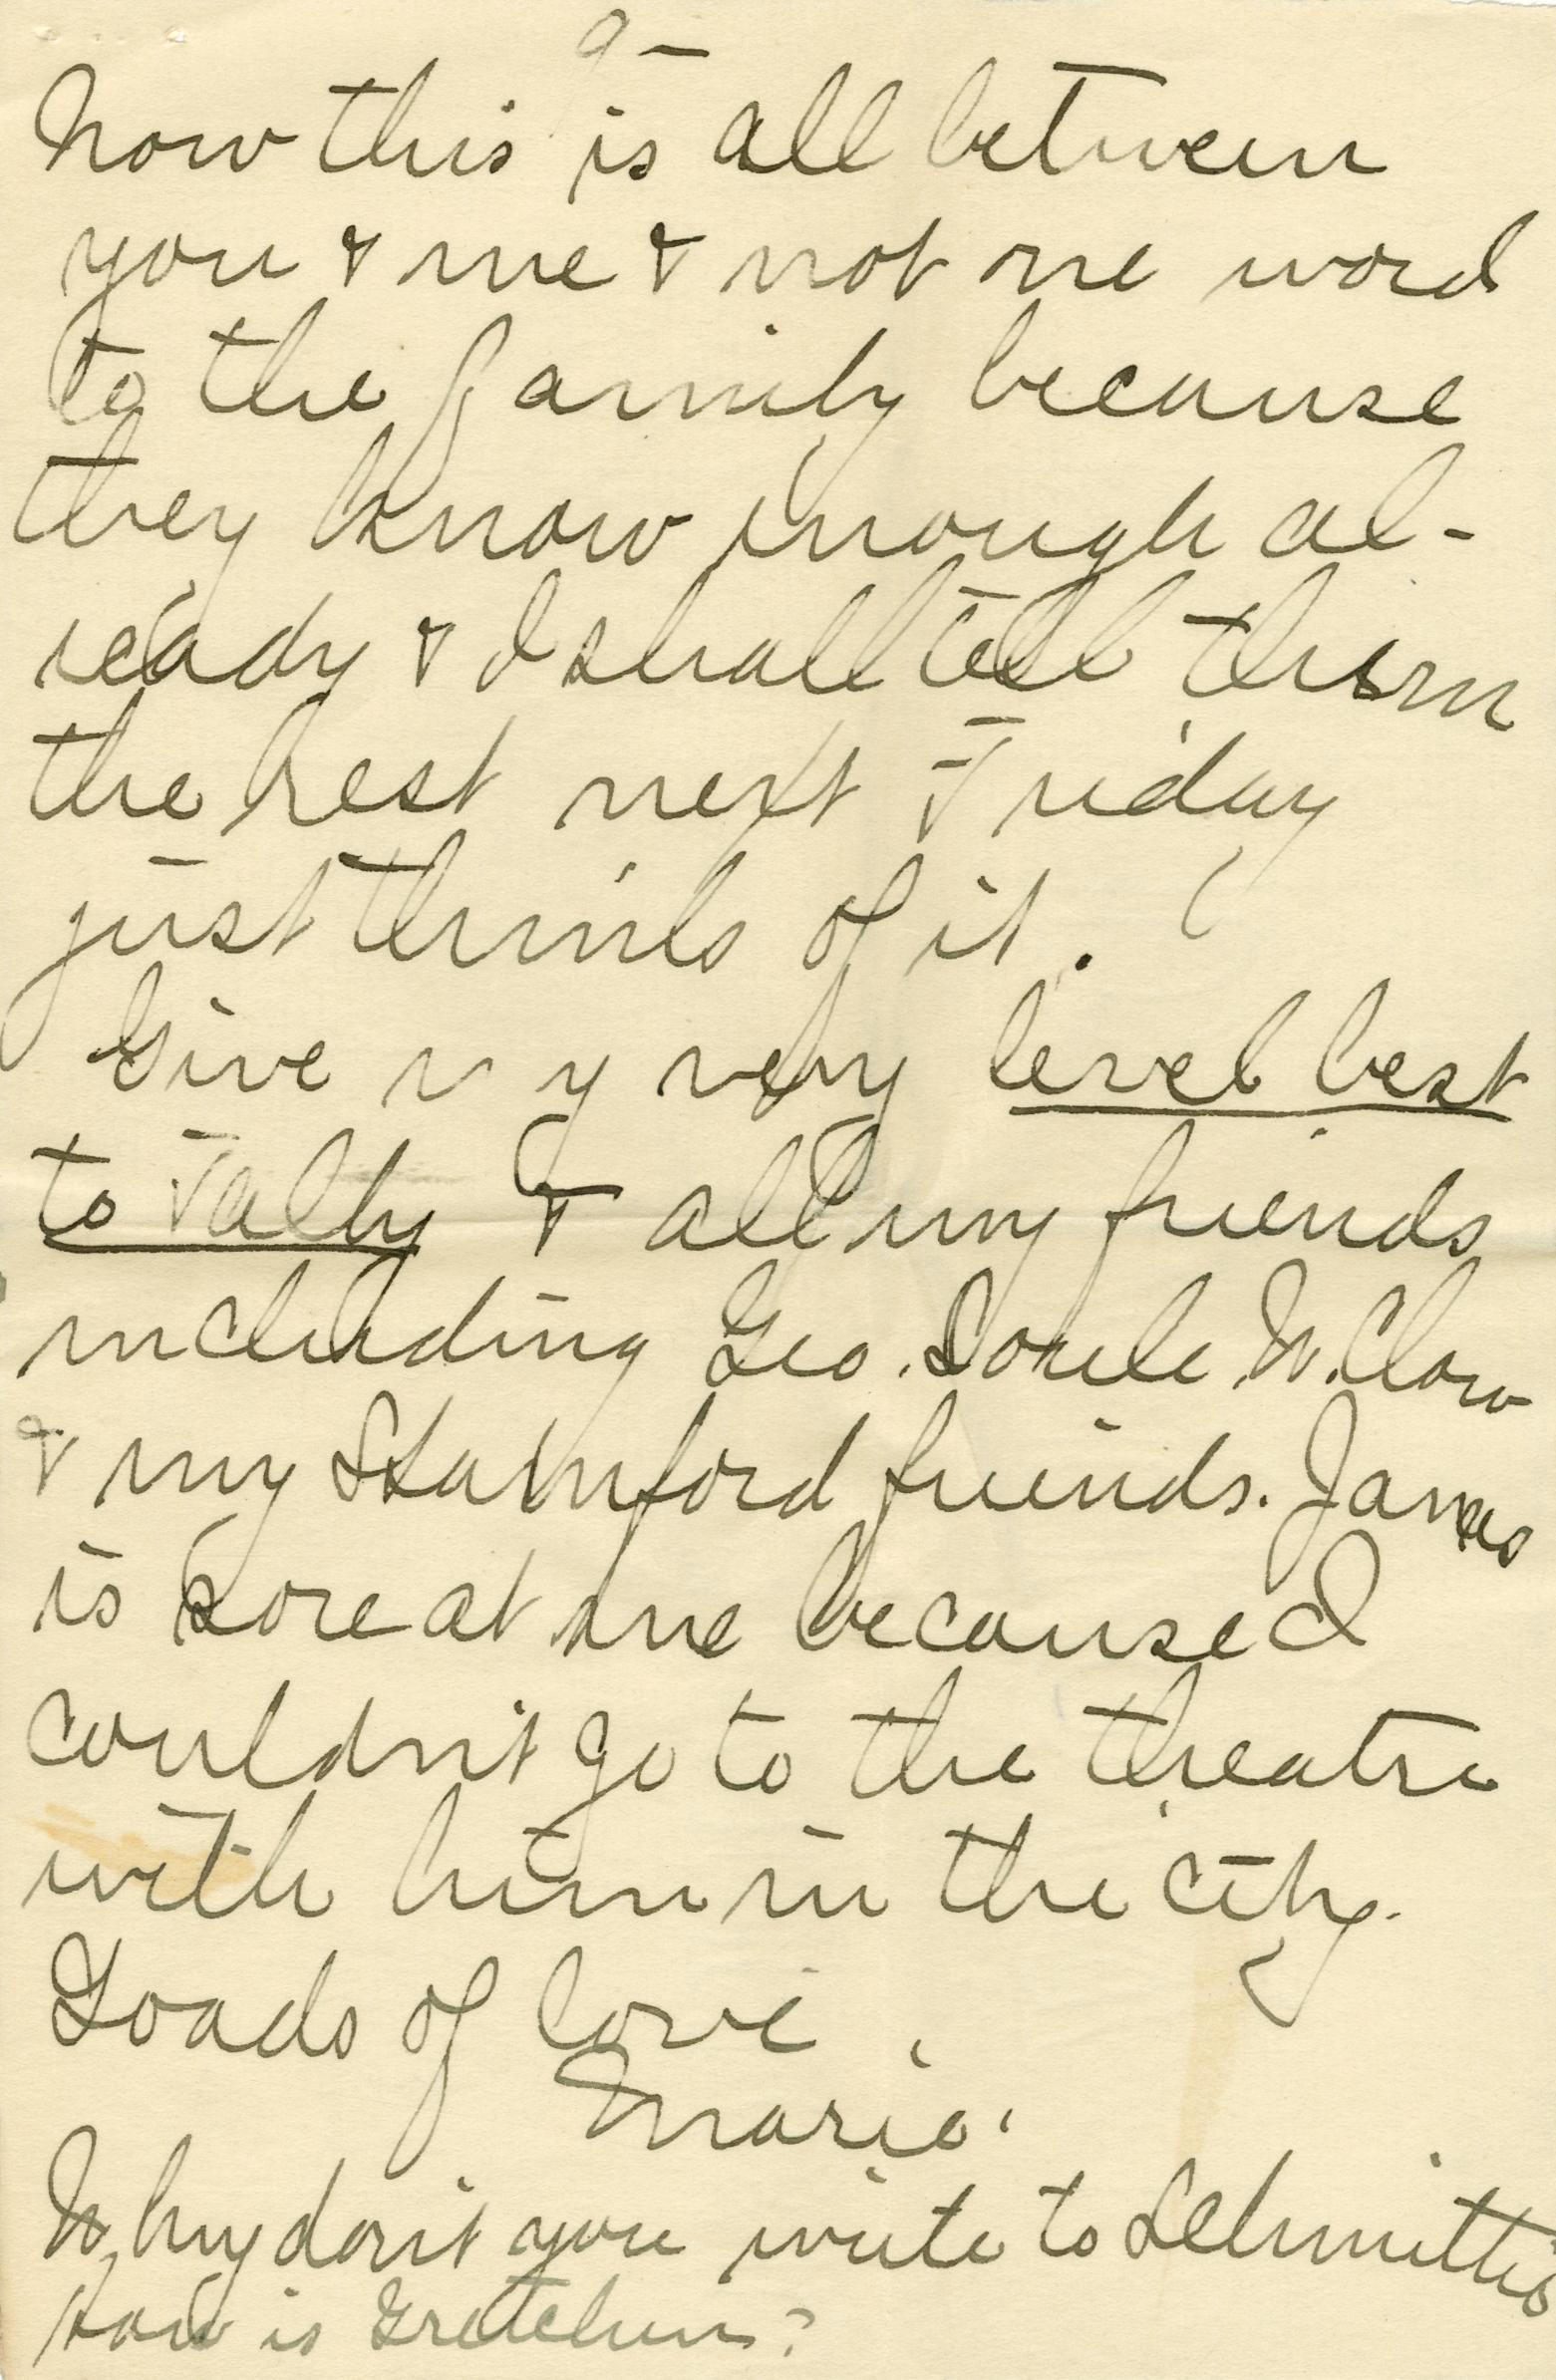 9-
Now this is all between
you & me & not one word
to the family because
they know enough al-
ready & I shall tell them
the rest next Friday
just think of it.
Give my very level best
to Tally & all my friends
including Geo. Soule W. Clow
& my Stamford friends. James
is sore at me because I
couldn't go to the theatre
with him in the city.
Loads of love,
Marie.
Why don't you write to Schmittie
How is Gretchen?